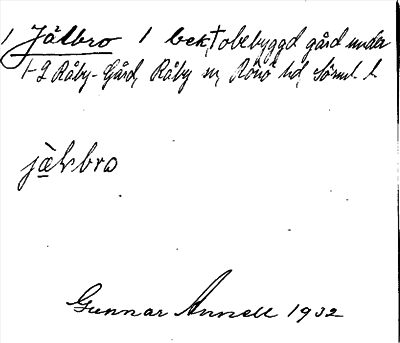 1 Jälbro 1 bek,† obebyggd gård under
1-2 Råby-Gård, Råby sn, Rönö hd, Sörml. l.
jälvbro
Gunnar Annell 1932